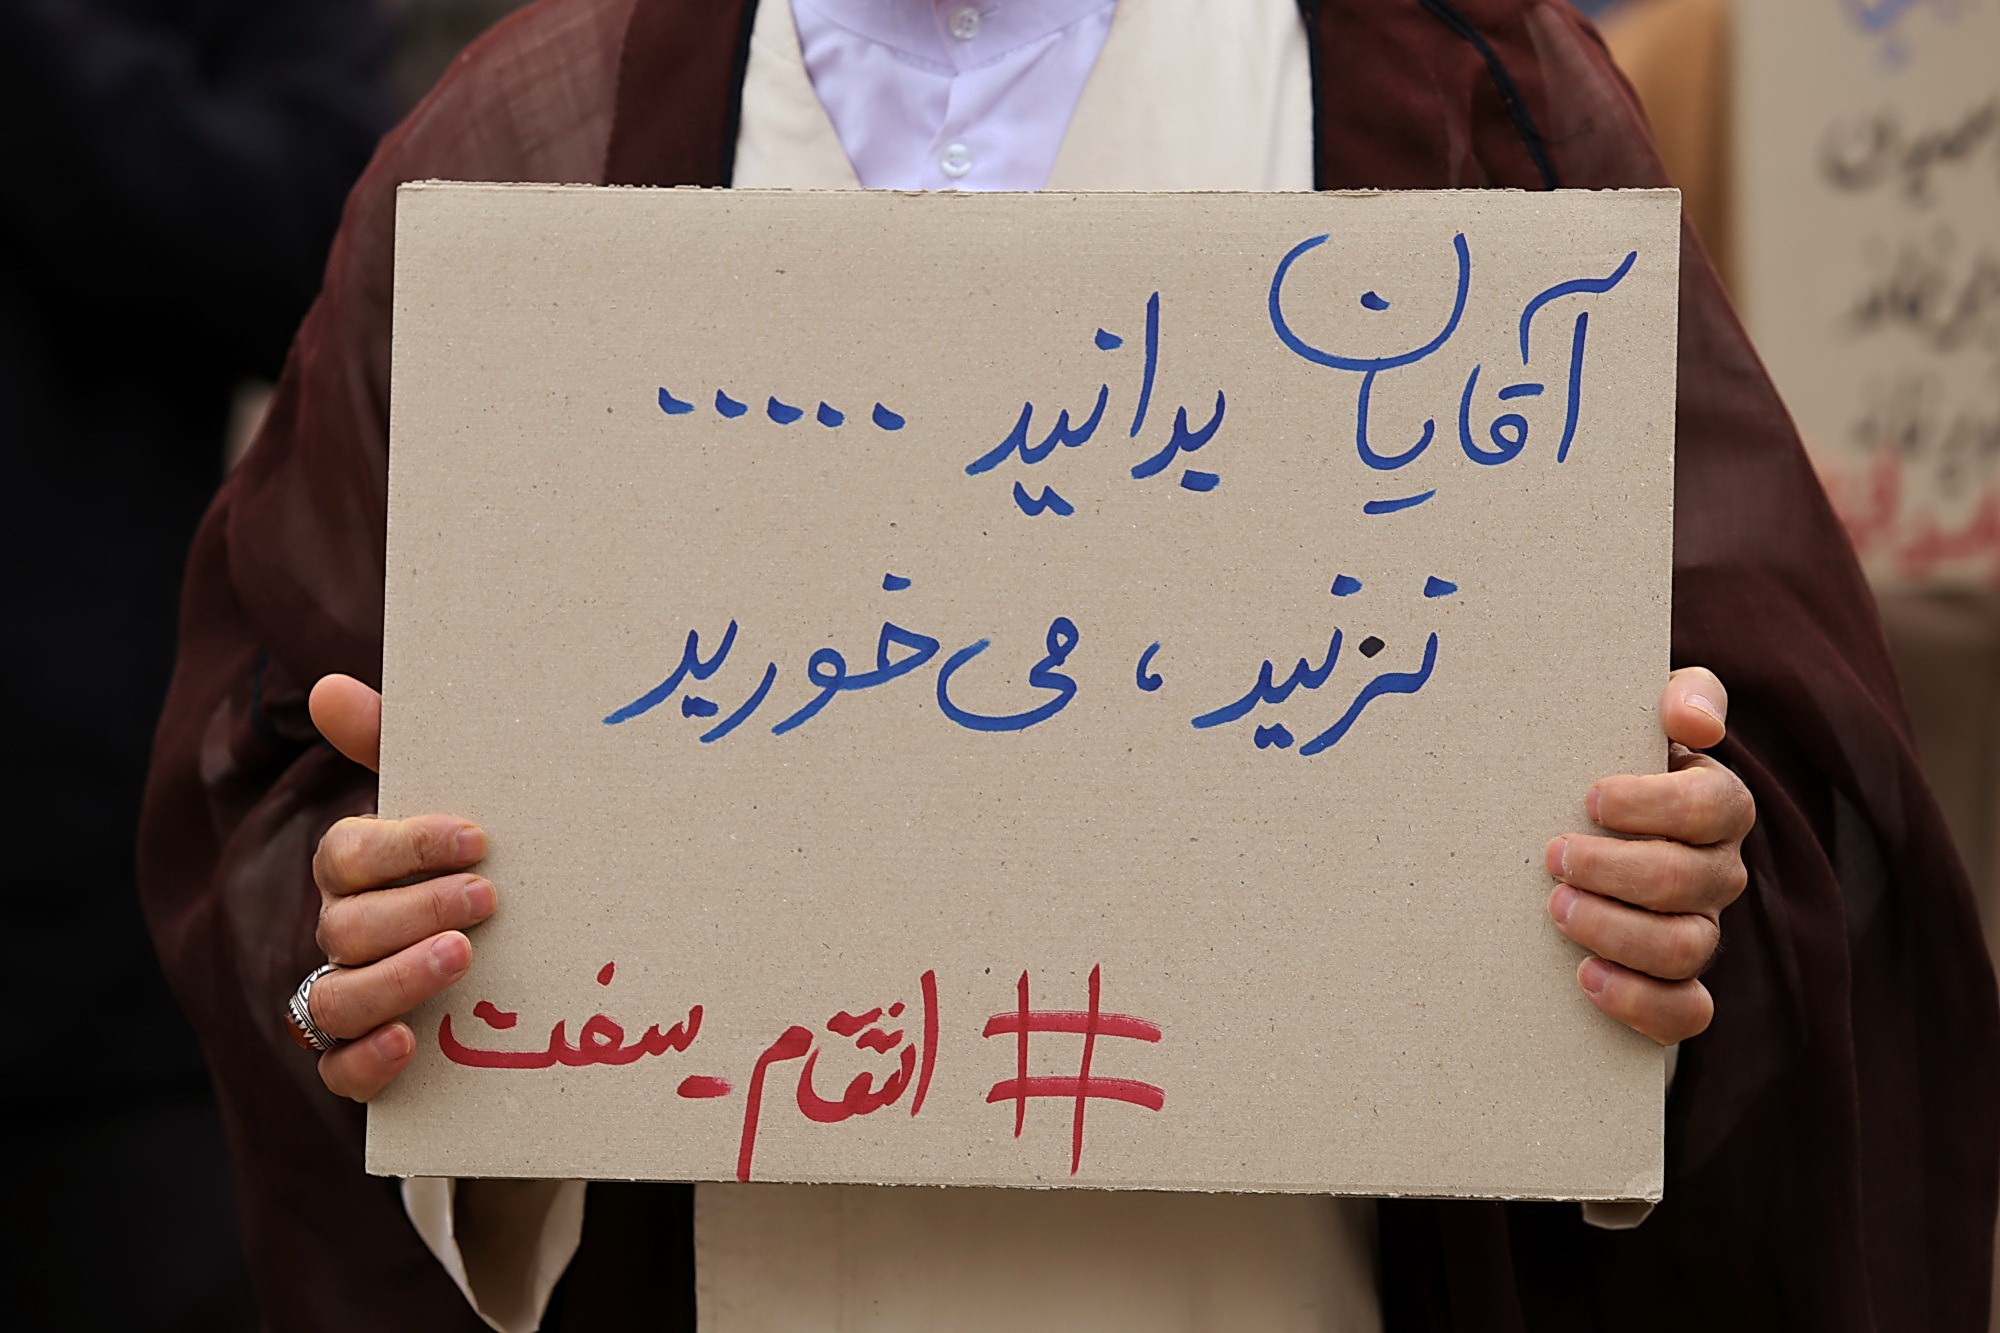 آقایان بدانید .....
نزنید ، می‌خورید
# انتقام_سفت